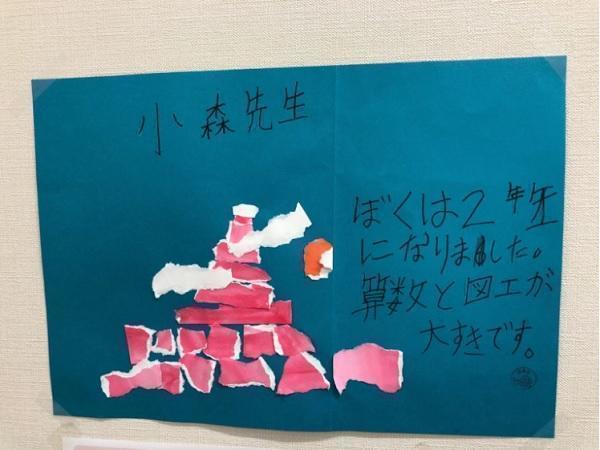 小森先生
ぼくは2年生
になりました。
算数と図工が
大すきです。